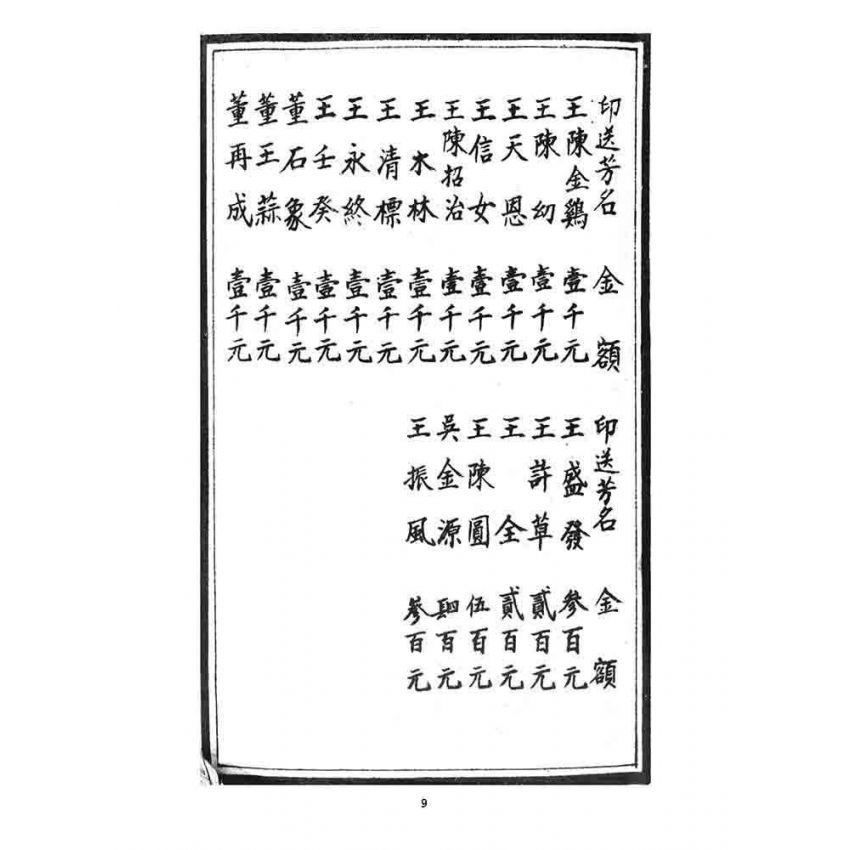 印送芳名 金額
王陳金鷄 壹千元
王陳幼 壹千元
王天恩 壹千元
王信女 壹千元
王陳招治 壹千元
王木林 壹千元
王清標 壹千元
王永終 壹千元
王壬癸 壹千元
董石象 壹千元
董王蒜 壹千元
董再成 壹千元
印送芳名 金額
王盛發 參百元
王許草 貳百元
王全 貳百元
王陳圓 伍百元
吳金源 肆百元
王振風 參百元
9